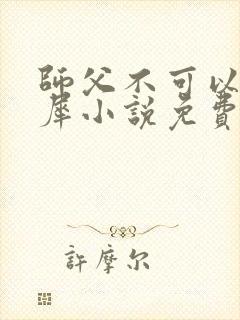 師父不可以
犀小說免費
許摩尔